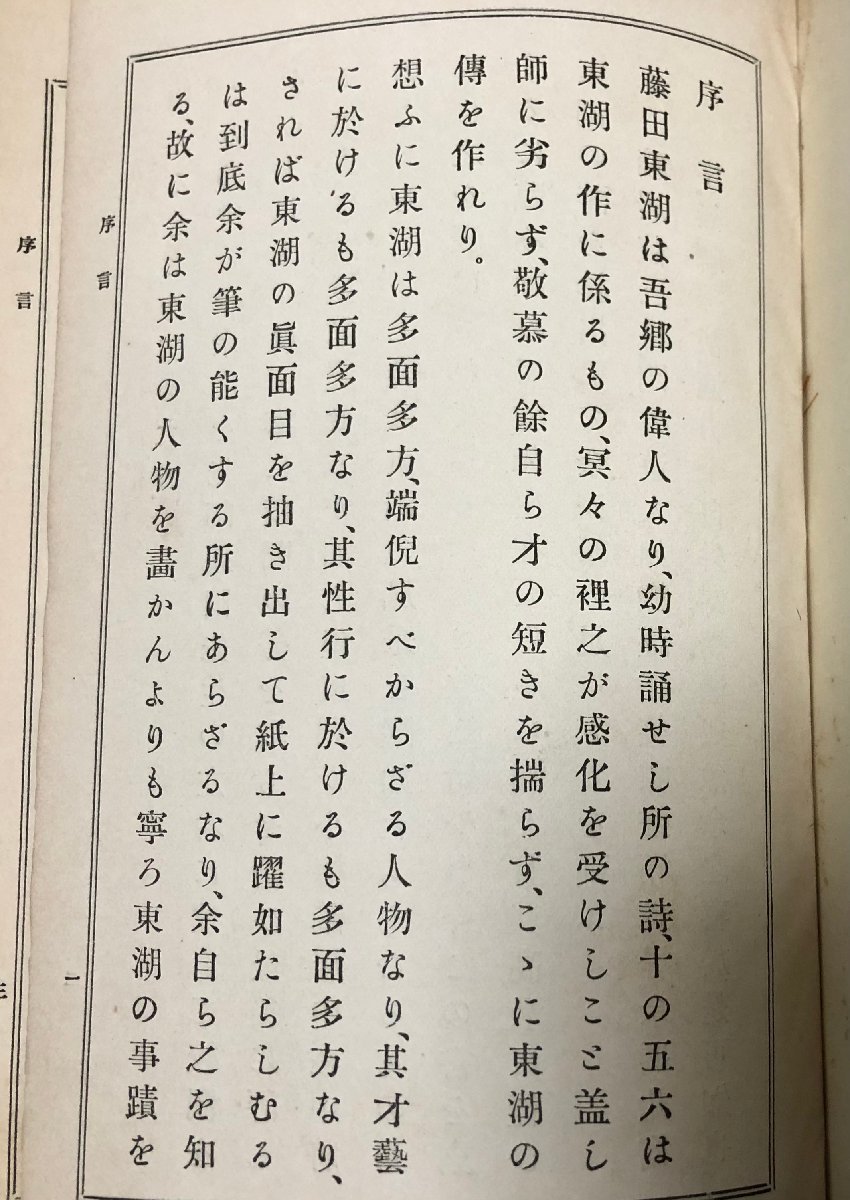 序言
藤田東湖は吾鄕の偉人なり、幼時誦せし所の詩、十の五六は
東湖の作に係るもの、冥々の裡之が感化を受けしこと盖し
師に劣らず、敬慕の餘自ら才の短きを揣らず、こゝに東湖の
傳を作れり。
想ふに東湖は多面多方、端倪すべからざる人物なり、其才藝
に於けるも多面多方なり、其性行に於けるも多面多方なり、
されば東湖の眞面目を抽き出して紙上に躍如たらしむる
は到底余が筆の能くする所にあらざるなり、余自ら之を知
る、故に余は東湖の人物を畵かんよりも寧ろ東湖の事蹟を
序言
一
序言